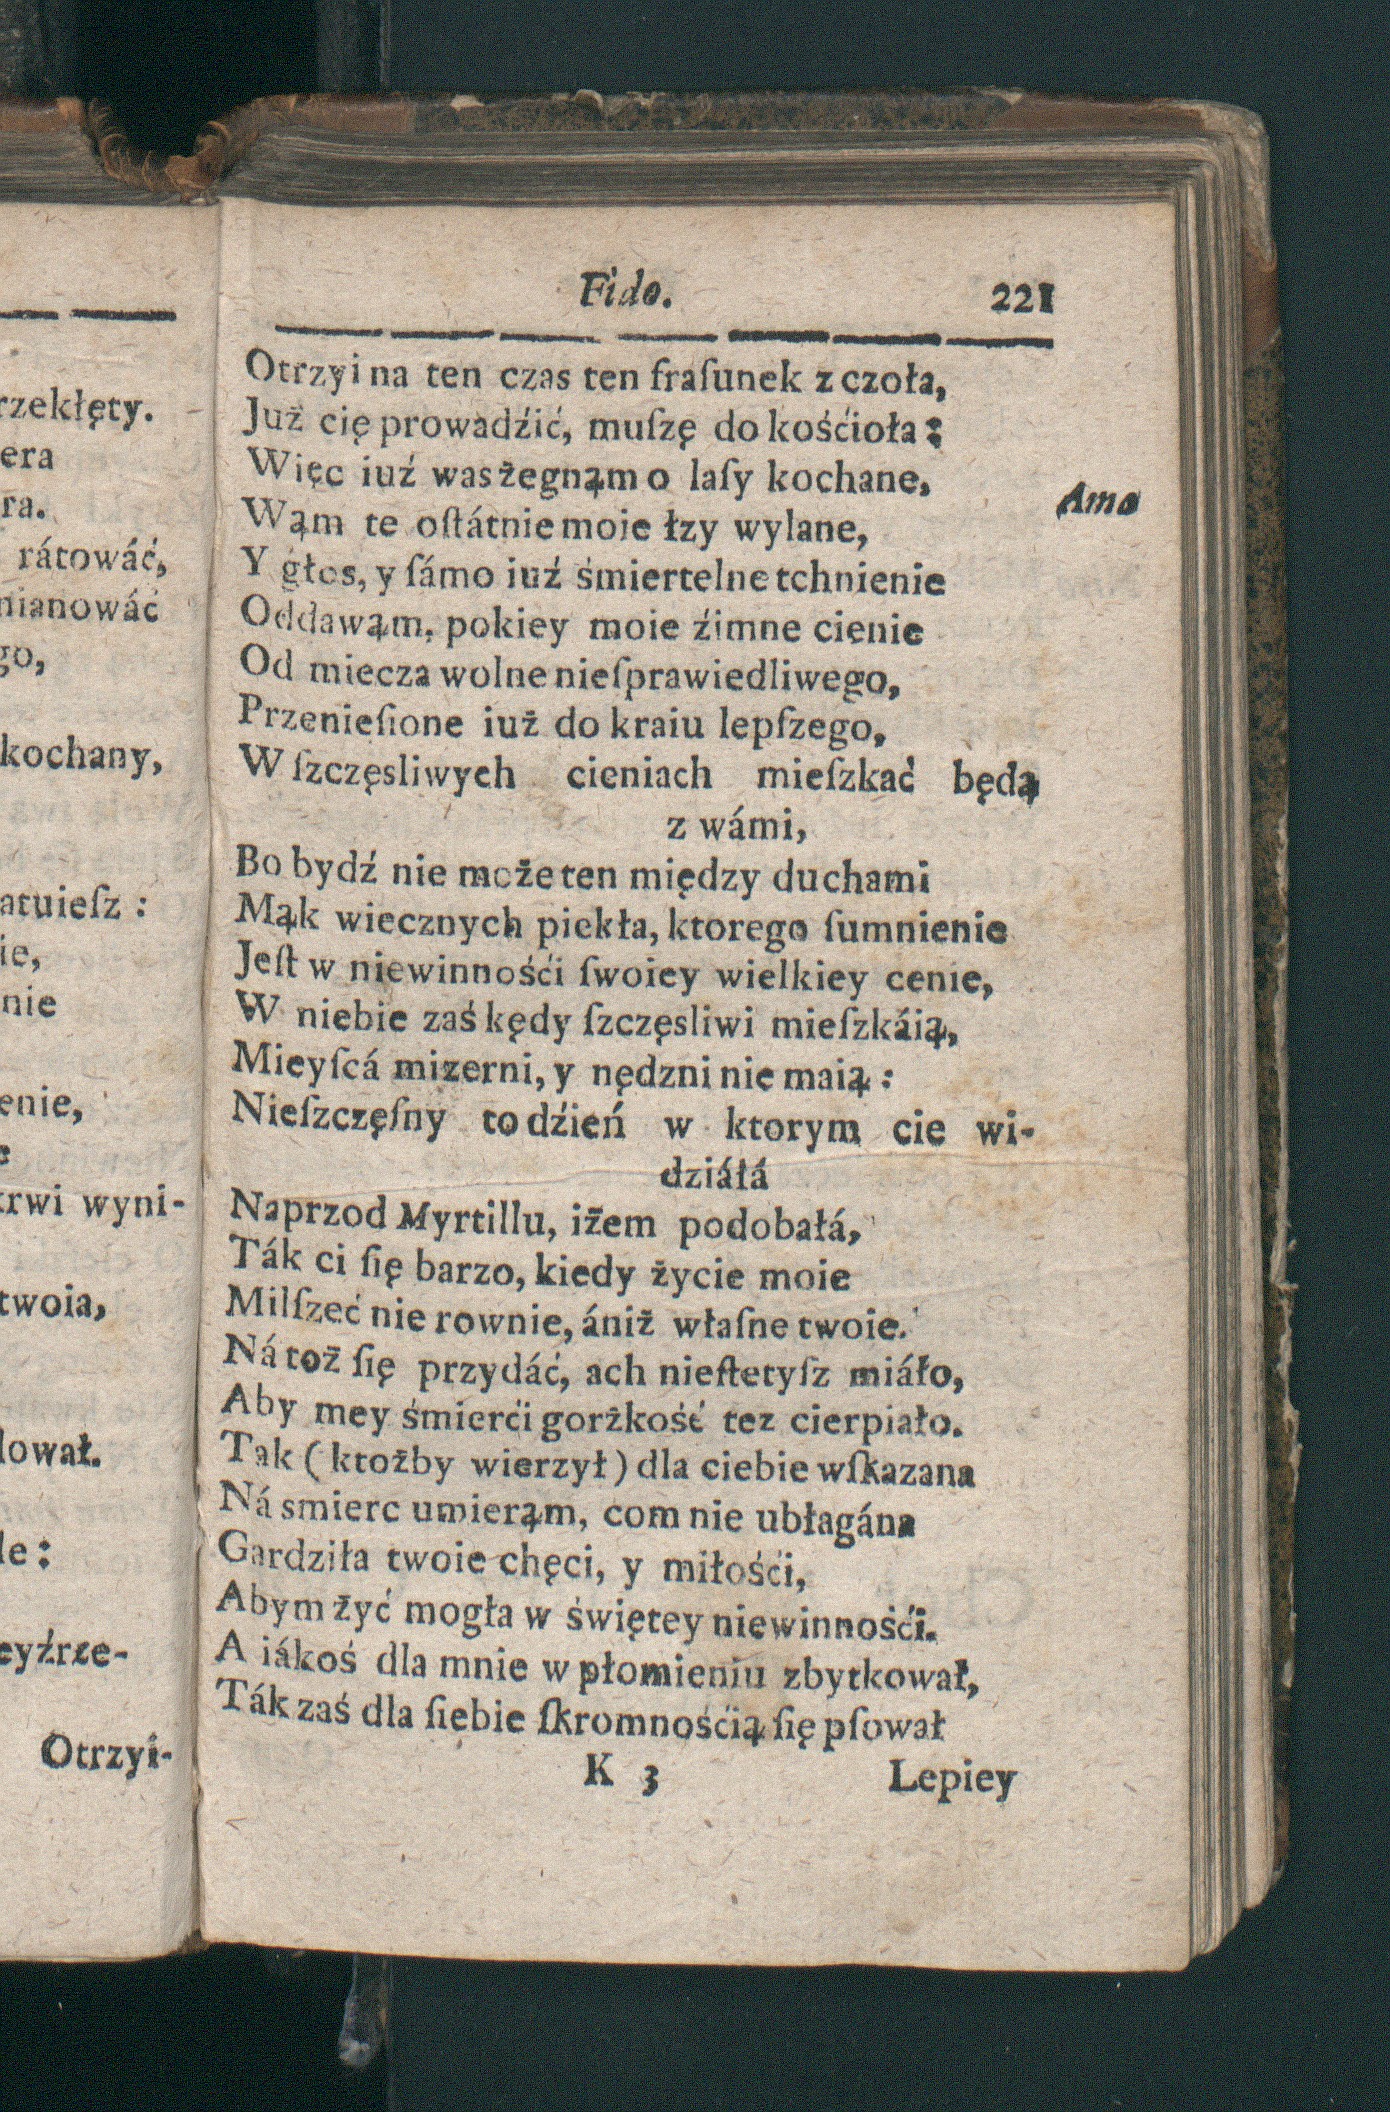 rzekłęty.
era
ra.
rátowáć,
mianowáć
go,
kochany,
atuieſz :
ie,
nie
enie,
krwi wyni-
twoia,
lował.
le :
eyźrze-
Otrzyi-
Fido. 221
Otrzyi na ten czas ten fraſunek z czoła,
Już cię prowadźić, muſzę do kośćioła :
Więc iuź was żegnąm o laſy kochane,
Amo
Wąm te oſtátnie moie łzy wylane,
Y głos, y ſámo iuź śmiertelne tchnienie
Oddawąm, pokiey moie źimne cienie
Od miecza wolne nieſprawiedliwego,
Przenieſione iuż do kraiu lepſzego,
W ſzczęsliwych cieniach mieſzkać będą
z wámi,
Bo bydź nie może ten między duchami
Mąk wiecznych piekła, ktorego ſumnienie
Jeſt w niewinnośći ſwoiey wielkiey cenie,
W niebie zaś kędy ſzczęsliwi mieſzkáią,
Mieyſcá mizerni, y nędzni nie maią :
Nieſzczęſny to dźień w ktorym cie wi-
dziáłá
Naprzod Myrtillu, iżem podobałá,
Ták ci ſię barzo, kiedy życie moie
Milſzeć nie rownie, ániż właſne twoie.
Ná toż ſię przydáć, ach nieſtetyſz miáło,
Aby mey śmierći gorżkość tez cierpiało.
Tak ( ktożby wierzył ) dla ciebie wſkazana
Ná smierc umierąm, com nie ubłagána
Gardziła twoie chęci, y miłośći,
Abym żyć mogła w świętey niewinnośći.
A iákoś dla mnie w płomieniu zbytkował,
Ták zaś dla ſiebie ſkromnośćią ſię pſował
K 3 Lepiey